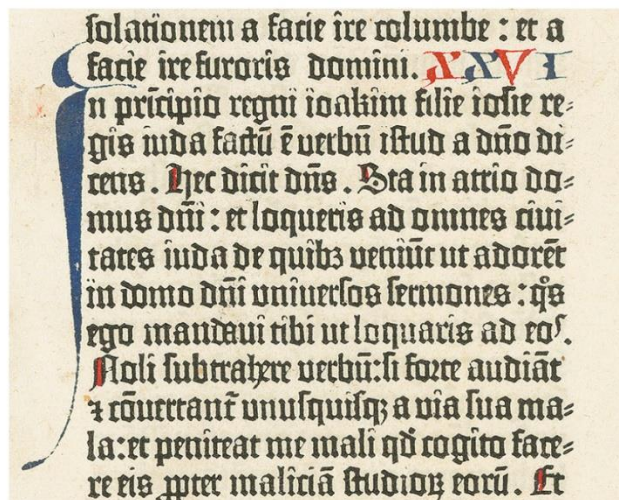 solationem a facie ire columbe : et a
facie ire furoris domini. XXVI
In prīcipio regni ioakim filie iosie re⸗
gis iuda factū ē verbū istud a dn̄o di⸗
cens . Hec dicit dn̄s . Sta in atrio do⸗
mus dn̄i : et loqueris ad omnes ciui⸗
tates iuda de quibꝫ veniūt ut adorēt
in domo dn̄i vniuersos sermones : qͦs
ego mandaui tibi ut loquaris ad eos.
Noli subtrahere verbū : si forte audiāt
⁊ cōuertant̄ vnusquisqꝫ a via sua ma⸗
la : et peniteat me mali qd̄ cogito face⸗
re eis ꝓpter maliciā studioꝝ eorū . Et